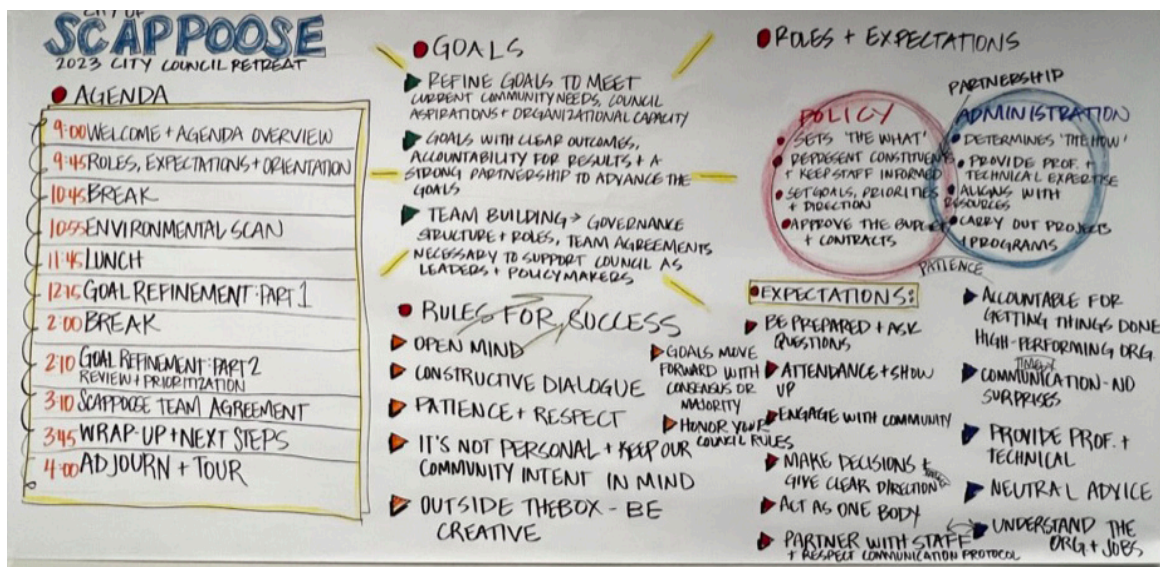 CITY OF
SCAPPOOSE
2023 CITY COUNCIL RETREAT
AGENDA
9:00 WELCOME + AGENDA OVERVIEW
9:45 ROLES, EXPECTATIONS + ORIENTATION
10:45 BREAK
10:55 ENVIRONMENTAL SCAN
11:45 LUNCH
12:15 GOAL REFINEMENT: PART 1
2:00 BREAK
2:10 GOAL REFINEMENT: PART 2
REVIEW + PRIORITIZATION
3:10 SCAPPOOSE TEAM AGREEMENT
3:45 WRAP-UP + NEXT STEPS
4:00 ADJOURN + TOUR
GOALS
REFINE GOALS TO MEET
CURRENT COMMUNITY NEEDS, COUNCIL
ASPIRATIONS + ORGANIZATIONAL CAPACITY
GOALS WITH CLEAR OUTCOMES,
ACCOUNTABILITY FOR RESULTS + A
STRONG PARTNERSHIP TO ADVANCE THE
GOALS
TEAM BUILDING → GOVERNANCE
STRUCTURE + ROLES, TEAM AGREEMENTS
NECESSARY TO SUPPORT COUNCIL AS
LEADERS + POLICYMAKERS
RULES FOR SUCCESS
OPEN MIND
CONSTRUCTIVE DIALOGUE
PATIENCE + RESPECT
IT'S NOT PERSONAL + KEEP OUR
COMMUNITY INTENT IN MIND
OUTSIDE THE BOX - BE
CREATIVE
GOALS MOVE
FORWARD WITH
CONSENSUS OR
MAJORITY
HONOR YOUR
COUNCIL RULES
ROLES + EXPECTATIONS
PARTNERSHIP
POLICY
SETS 'THE WHAT'
REPRESENT CONSTITUENTS
+ KEEP STAFF INFORMED
SET GOALS, PRIORITIES
+ DIRECTION
APPROVE THE BUDGET
+ CONTRACTS
ADMINISTRATION
DETERMINES 'THE HOW'
PROVIDE PROF. +
TECHNICAL EXPERTISE
ALIGNS WITH
RESOURCES
CARRY OUT PROJECTS
+ PROGRAMS
PATIENCE
EXPECTATIONS:
BE PREPARED + ASK
QUESTIONS
ATTENDANCE + SHOW
UP
ENGAGE WITH COMMUNITY
MAKE DECISIONS +
GIVE CLEAR DIRECTION
ACT AS ONE BODY
PARTNER WITH STAFF
+ RESPECT COMMUNICATION PROTOCOL
ACCOUNTABLE FOR
GETTING THINGS DONE
HIGH-PERFORMING ORG.
TIMELY
COMMUNICATION - NO
SURPRISES
PROVIDE PROF. +
TECHNICAL
NEUTRAL ADVICE
UNDERSTAND THE
ORG + JOBS